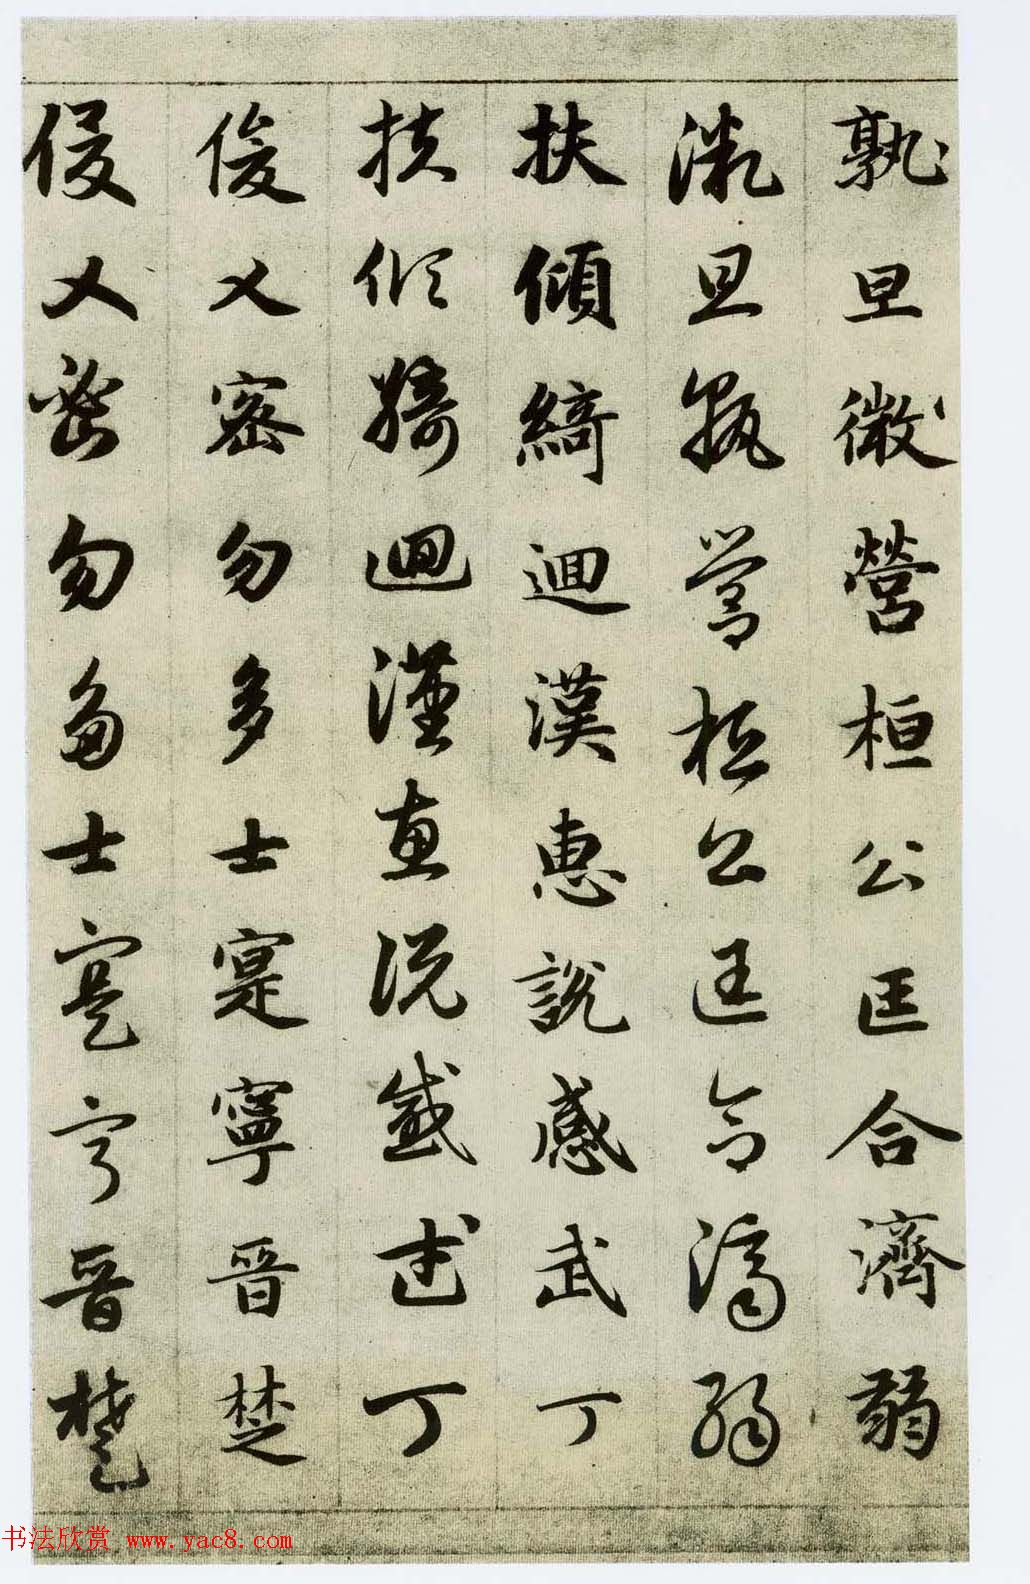 孰旦微營桓公匡合濟弱
微旦孰營桓公匡合濟弱
扶傾綺迴漢惠說感武丁
扶傾綺迴漢惠說感武丁
俊乂密勿多士寔寧晉楚
俊乂密勿多士寔寧晉楚
书法欣赏 www.yac8.com